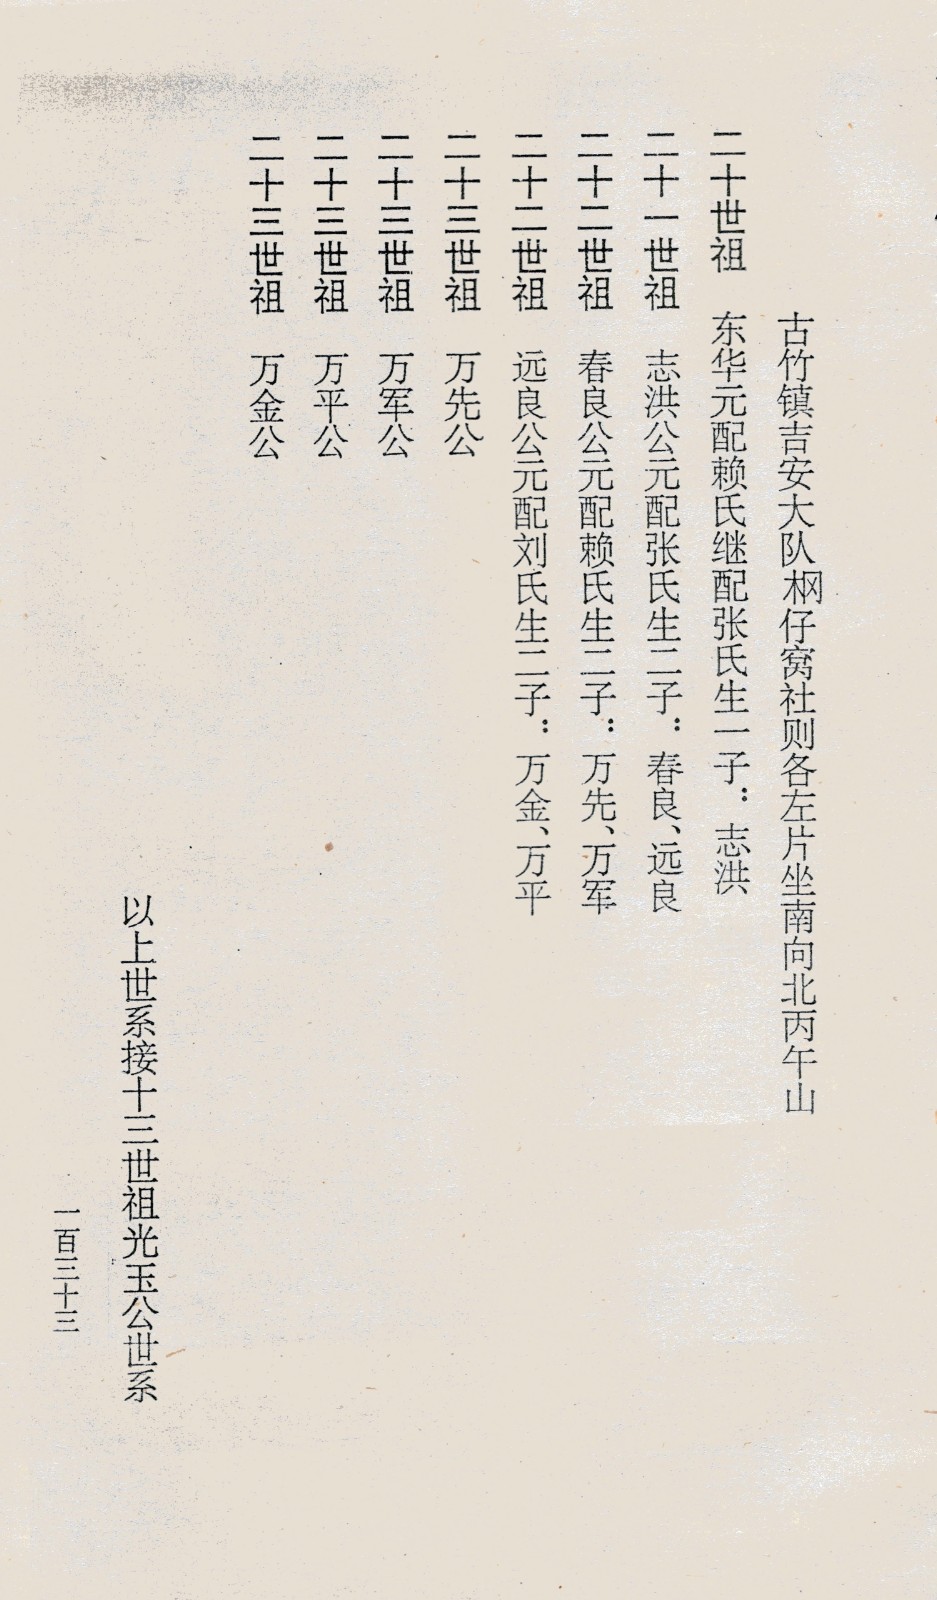 古竹镇吉安大队棢仔窝社则各左片坐南向北丙午山
二十世祖 东华元配赖氏继配张氏生一子：志洪
二十一世祖 志洪公元配张氏生二子：春良、远良
二十二世祖 春良公元配赖氏生二子：万先、万军
二十二世祖 远良公元配刘氏生二子：万金、万平
二十三世祖 万先公
二十三世祖 万军公
二十三世祖 万平公
二十三世祖 万金公
以上世系接十三世祖光玉公世系
一百三十三